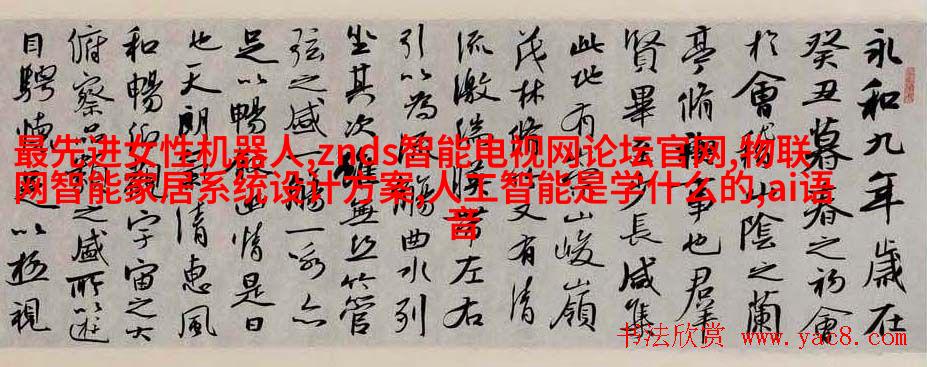 永和九年歲在
癸丑暮春之初會
於會稽山陰之蘭
亭脩禊事也羣
賢畢至少長咸集
此地有崇山峻嶺
茂林脩竹又有清
流激湍暎帶左右
引以為流觴曲水列
坐其次雖無絲竹管
弦之盛一觴一詠亦
足以暢叙幽情是日
也天朗氣清惠風
和暢仰觀宇宙之大
俯察品類之盛所以遊
目騁懷足以極視
最先进女性机器人,znds智能电视网论坛官网,物联
网智能家居系统设计方案,人工智能是学什么的,ai语
音
书法欣赏 www.yac8.com